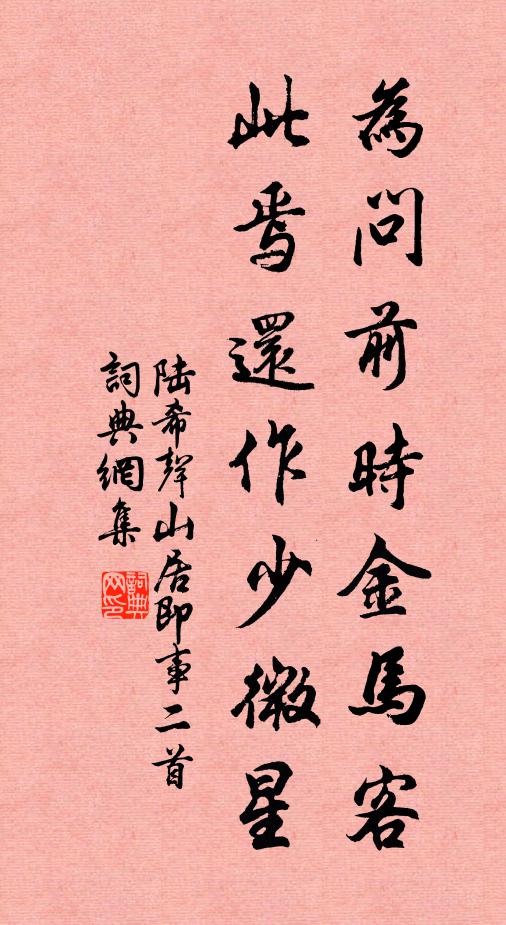 為問前時金馬客
此焉還作少微星
陸希聲山居即事二首
詞典網集
詞典網印